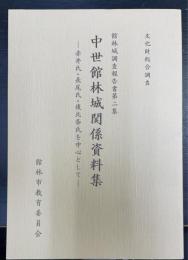 文化財総合調査
館林城調査報告書第二集
中世館林城関係資料集
―赤井氏・長尾氏・後北条氏を中心として―
館林市教育委員会